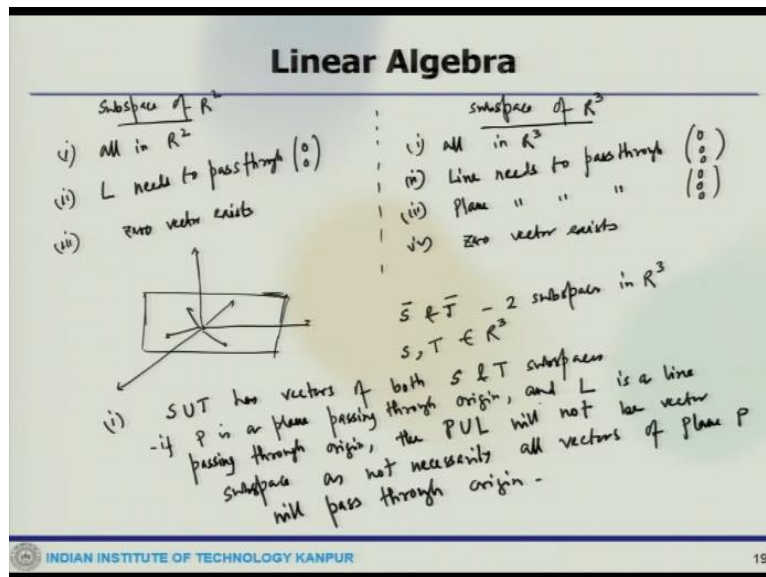 Linear Algebra
Subspace of R²
(i) all in R²
(ii) L needs to pass through (0 0)
(iii) zero vector exists
subspace of R³
(i) all in R³
(ii) Line needs to pass through (0 0 0)
(iii) Plane " " " (0 0 0)
(iv) zero vector exists
S̄ & T̄ - 2 subspaces in R³
S, T ∈ R³
(i) SUT has vectors of both S & T subspaces
- if P is a plane passing through origin, and L is a line
passing through origin, the PUL will not be vector
subspace as not necessarily all vectors of plane P
will pass through origin -
INDIAN INSTITUTE OF TECHNOLOGY KANPUR
19